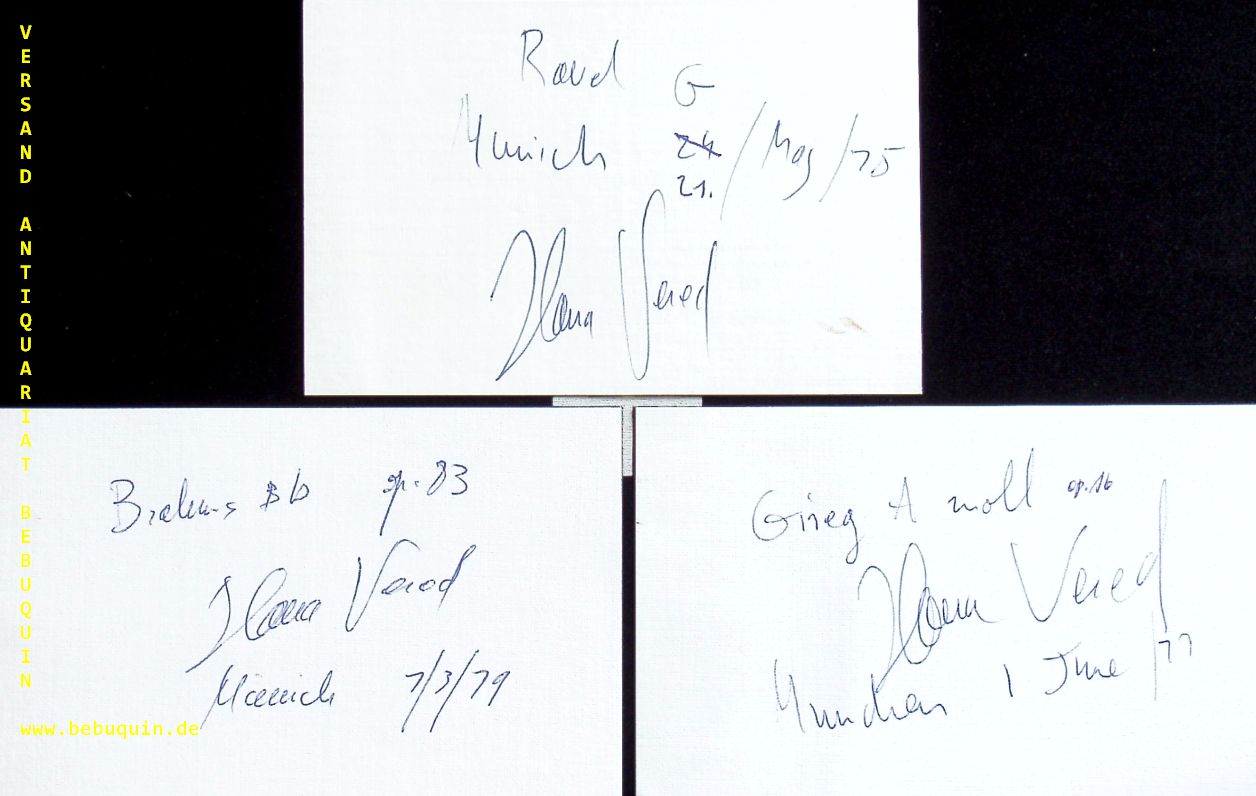 VERSAND ANTIQUARIAT BEBUQUIN
www.bebuquin.de
Ravel G
Munich 24 / May / 75
21.
Ilana Vered
Brahms Bb op. 83
Ilana Vered
Munich 7/3/79
Grieg A moll op. 16
Ilana Vered
München 1 June /77